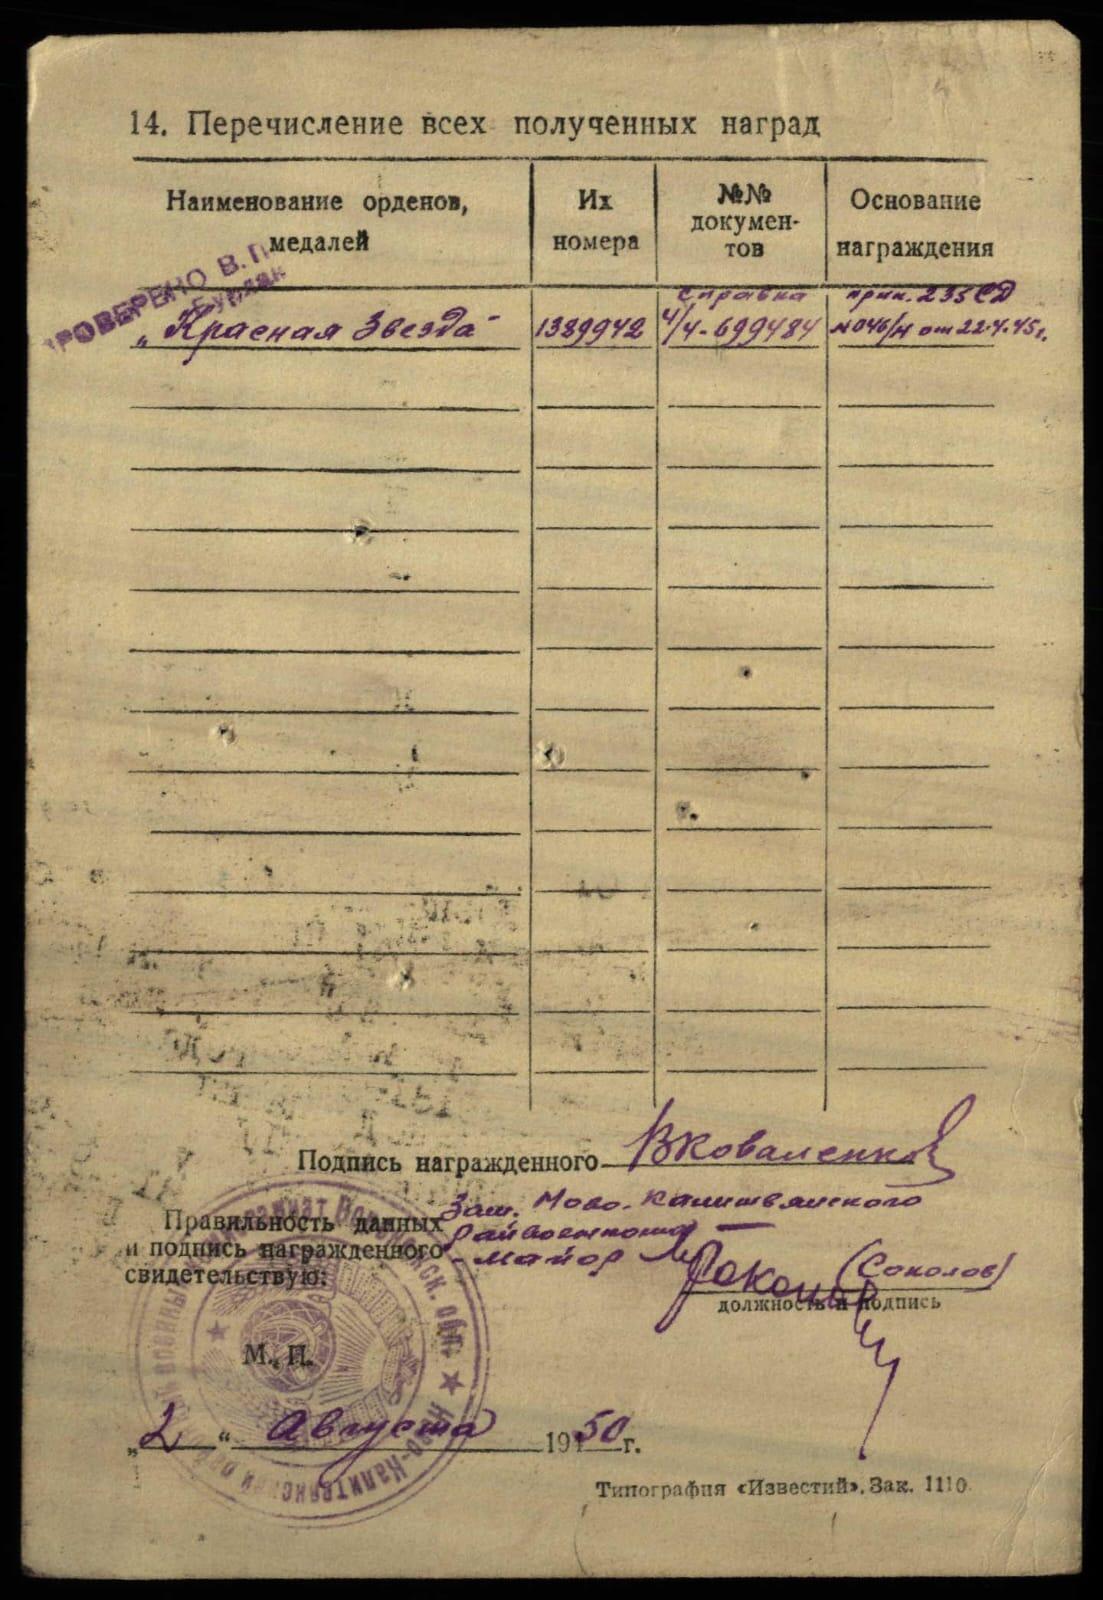 14. Перечисление всех полученных наград
Наименование орденов, медалей
Их номера
№№ докумен-
тов
Основание награждения
ПРОВЕРЕНО В. П.
„Красная Звезда"
1389942
справка
4/4-699484
прик. 235 СД
№046/н от 22.4.45г.
Подпись награжденного ВКоваленко
Правильность данных
и подпись награжденного
свидетельствую:
Зам. Ново.
Райвоенкома
- майор
(Соколов)
должность и подпись
М. П.
„2“ Августа 1950 г.
Типография «Известий». Зак. 1110